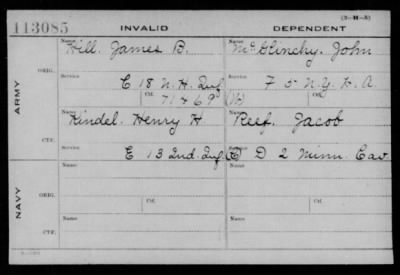 (3-H-5)
113085 INVALID DEPENDENT
Name Name
Hill. James B. McGlinchy. John
ORIG.
Service Service
E 18 N.H. Inf F 5 N.Y. H. A.
Ctf. 71469 (W) Ctf.
ARMY
Name Name
Kindel. Henry H Reef. Jacob
CTF.
Service
E 13 Ind. Inf D 2 Minn. Cav.
Name Name
ORIG.
Service Service
Ctf. Ctf.
NAVY
Name Name
CTF.
Service Service